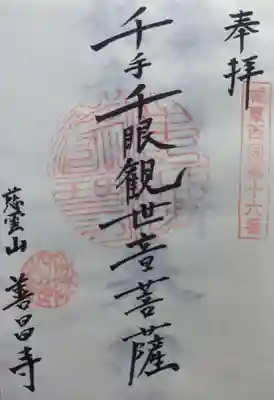 奉拝
千手千眼観世音菩薩
慈雲山
善昌寺